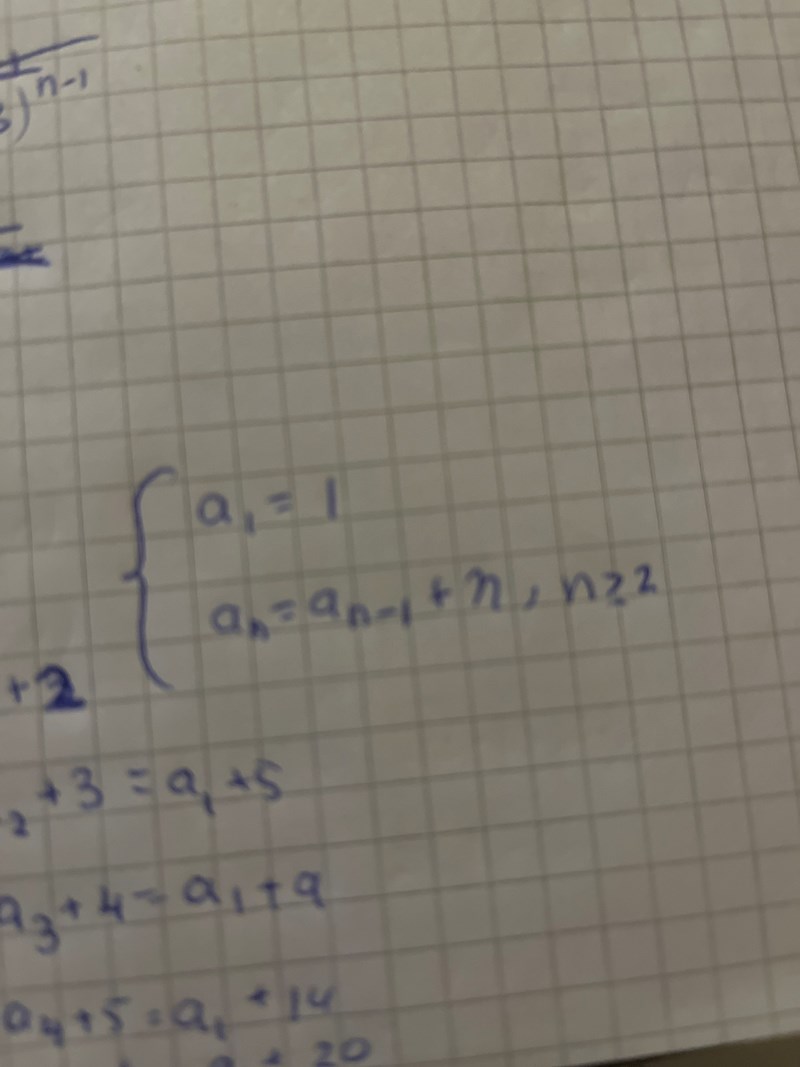 )ⁿ⁻¹
a₁ = 1
aₙ = aₙ₋₁ + n, n ≥ 2
+2
₂ + 3 = a₁ + 5
a₃ + 4 = a₁ + 9
a₄ + 5 = a₁ + 14
+ 20